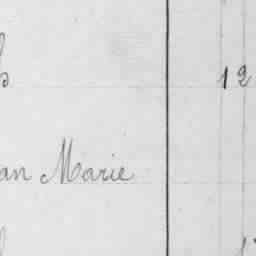 12
an Marie